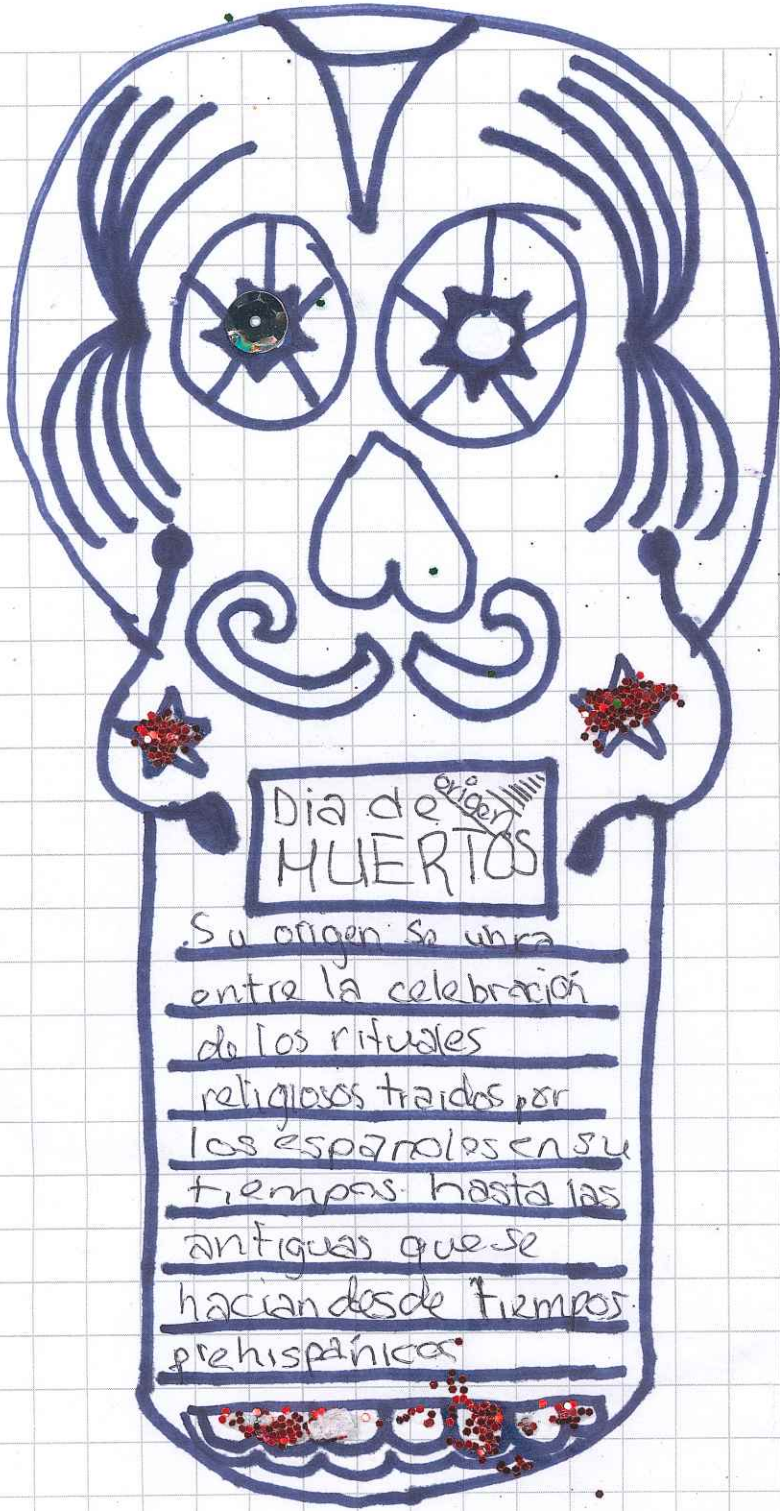 Dia de
origen
MUERTOS
Su origen se ubica
entre la celebración
de los rituales
religiosos traidos por
los españoles en su
tiempos hasta las
antiguas que se
hacian desde tiempos
prehispánicos